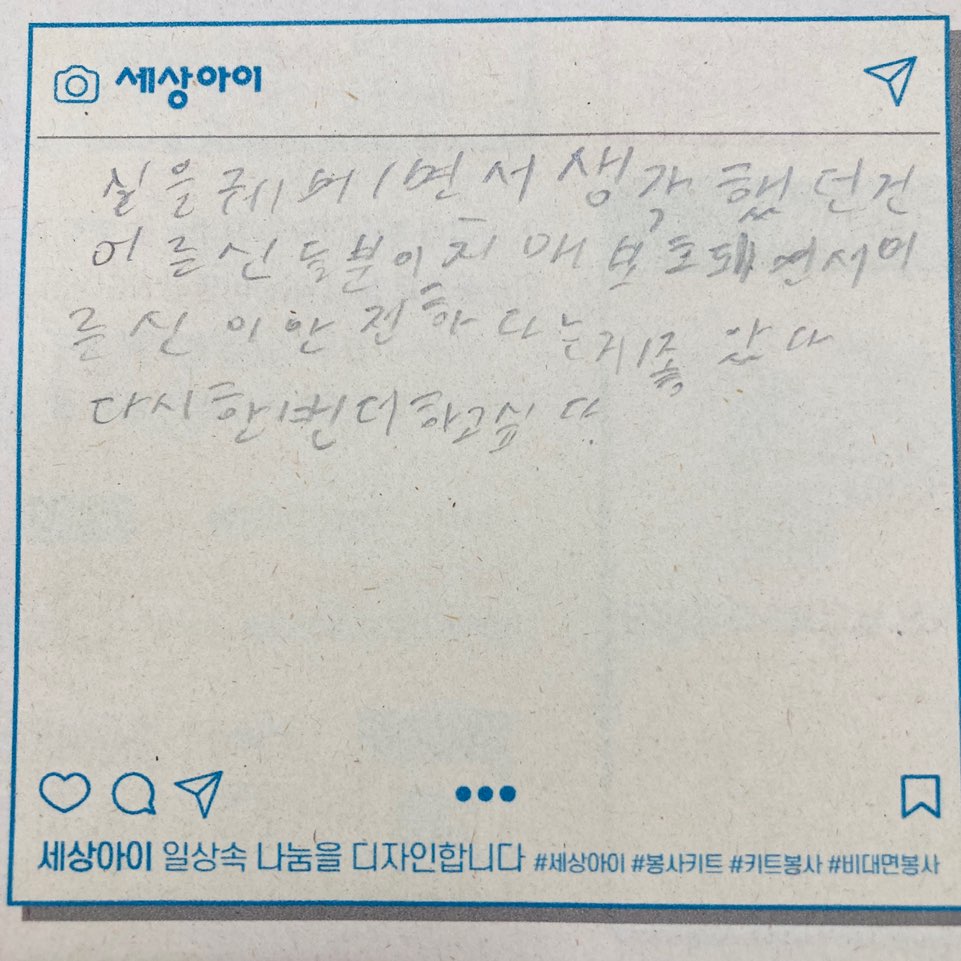 세상아이
실을 궤머면서 생각했던건
어르신들분이 치매 보호돼면서 어
르신이 안전하다는게 좋았다
다시 한번 더 하고 싶다
세상아이 일상속 나눔을 디자인합니다 #세상아이 #봉사키트 #키트봉사 #비대면봉사